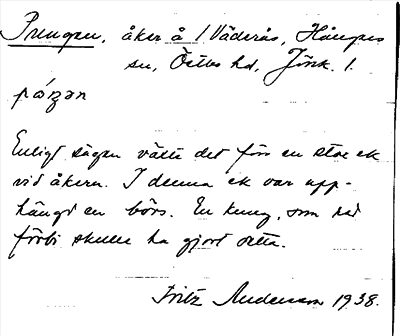 Pungen, åker å 1 Väderås, Hånger
sn, Östbo hd, Jönk. l.
Enligt sägen växte det förr en stor ek
vid åkern. I denna ek var upp-
hängd en börs. En kung, som red
förbi skulle ha gjort detta.
Fritz Andersson 1938.